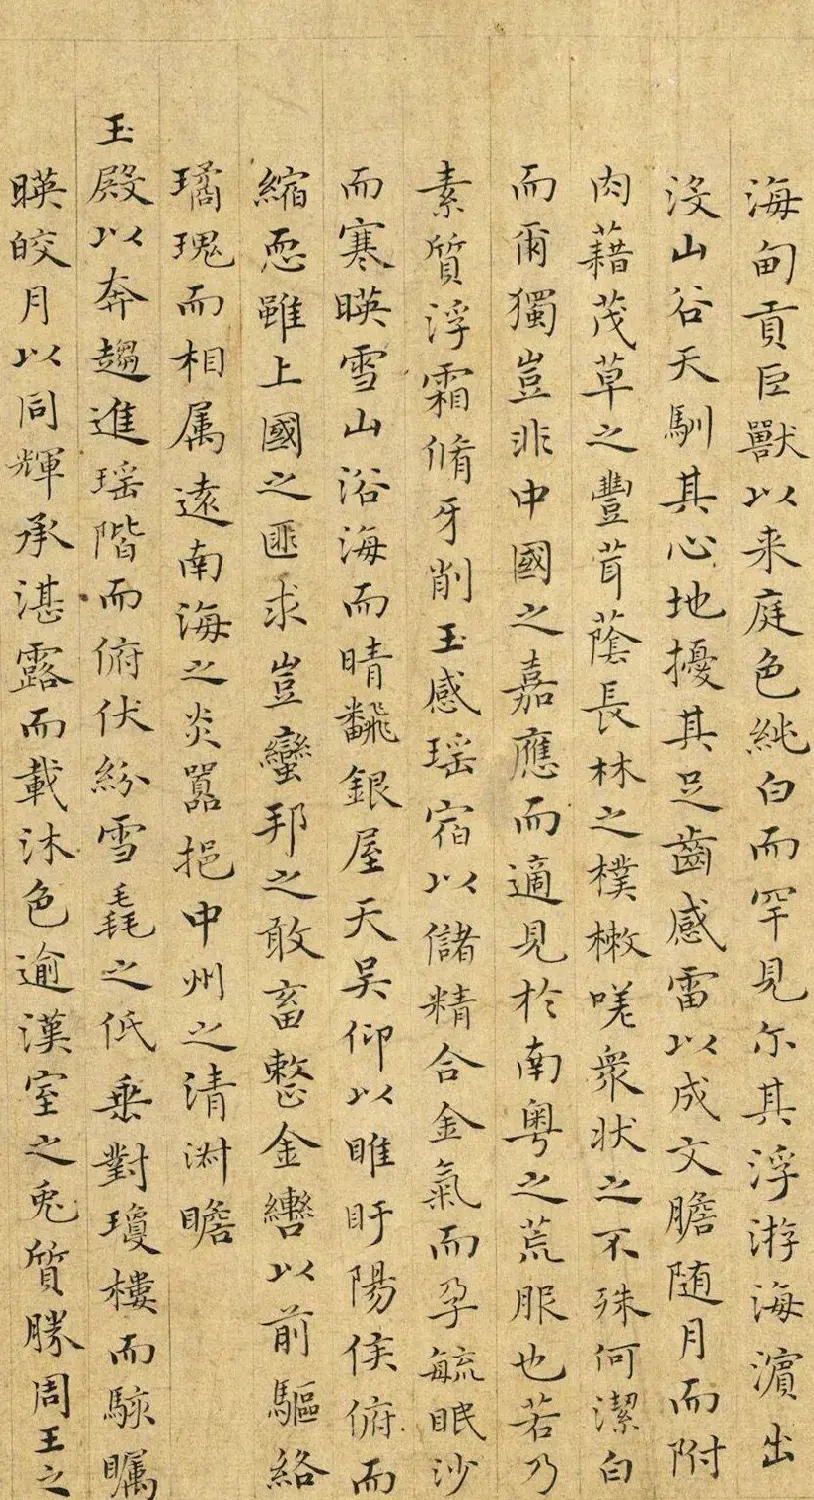 海甸貢巨獸以来庭色純白而罕見尓其浮游海濵出
没山谷天馴其心地擾其足齒感雷以成文膽随月而附
肉藉茂草之豐茸蔭長林之樸樕嗟衆状之不殊何潔白
而爾獨豈非中國之嘉應而適見於南粤之荒服也若乃
素質浮霜脩牙削玉感瑶宿以儲精合金氣而孕毓眠沙
而寒暎雪山浴海而晴飜銀屋天吴仰以睢盱陽侯俯而
縮恧雖上國之匪求豈蠻邦之敢畜整金轡以前驅絡
璚瑰而相属遠南海之炎嚣挹中州之清淑瞻
玉殿以奔趨進瑶階而俯伏紛雪毳之低垂對瓊樓而駭矚
暎皎月以同輝承湛露而載沐色逾漢室之兎質勝周王之